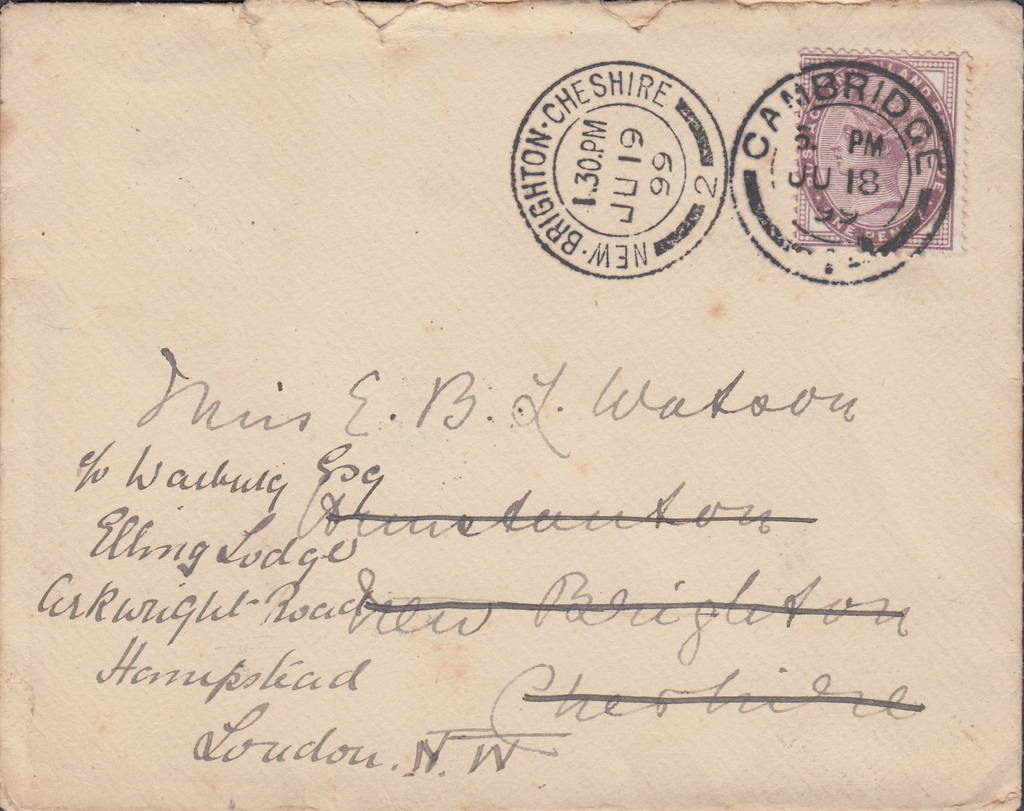 NEW·BRIGHTON·CHESHIRE
1.30.PM
JU 19
99
2
CAMBRIDGE
PM
JU 18
99
Miss E. B. L. Watson
c/o Warburg Esq
Hunstanton
Elling Lodge
Arkwright Road
New Brighton
Hampstead
Cheshire
London. N. W